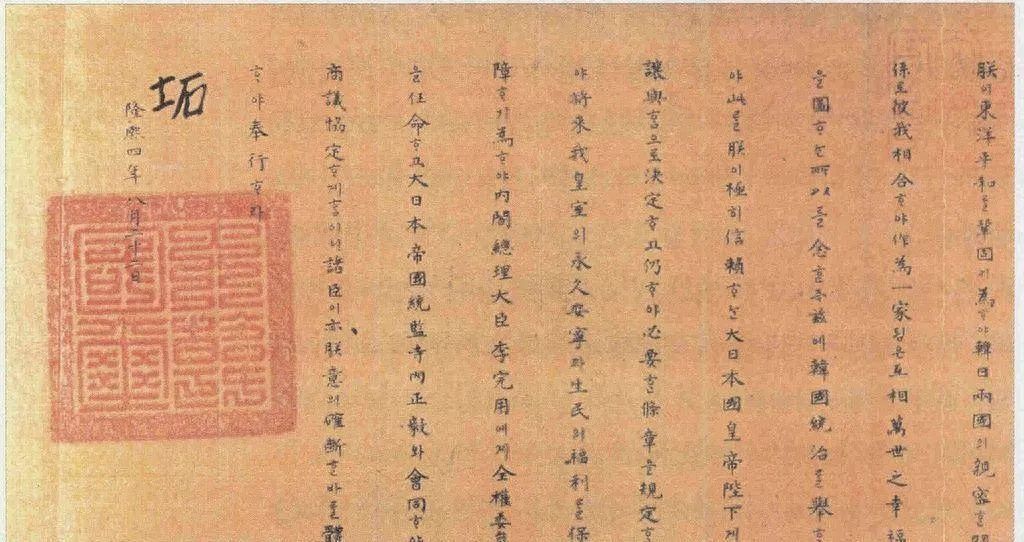 朕이東洋平和를鞏固히為ᄒᆞ야韓日兩國의親密ᄒᆞᆫ
係로彼我相合ᄒᆞ야作為一家ᄒᆞᆷ은互相萬世之幸福
을圖ᄒᆞᄂᆞᆫ所以를念ᄒᆞᆫ즉玆에韓國統治를舉ᄒᆞ
야此를朕이極히信賴ᄒᆞᄂᆞᆫ大日本國皇帝陛下게
讓與ᄒᆞᆷ으로決定ᄒᆞ고仍ᄒᆞ야必要ᄒᆞᆫ條章을規定ᄒᆞ
야將來我皇室의永久安寧과生民의福利를保
障ᄒᆞ기為ᄒᆞ야內閣總理大臣李完用에게全權委
을任命ᄒᆞ고大日本帝國統監寺內正毅와會同ᄒᆞ야
商議協定ᄒᆞ게ᄒᆞᆷ이니諸臣이亦朕意의確斷ᄒᆞᆫ바를體
ᄒᆞ야奉行ᄒᆞ라
隆熙四年八月二十二日
坧